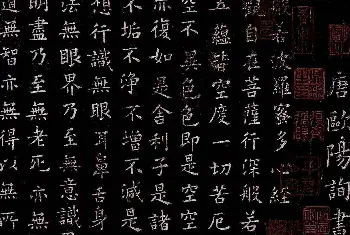 唐歐陽詢書
若波羅蜜多心經
觀自在菩薩行深般若
五蘊皆空度一切苦厄
空不異色色即是空空
亦復如是舍利子是諸
不垢不淨不增不減是
想行識無眼耳鼻舌身
法無眼界乃至無意識
明盡乃至無老死亦無
道無智亦無得以無所